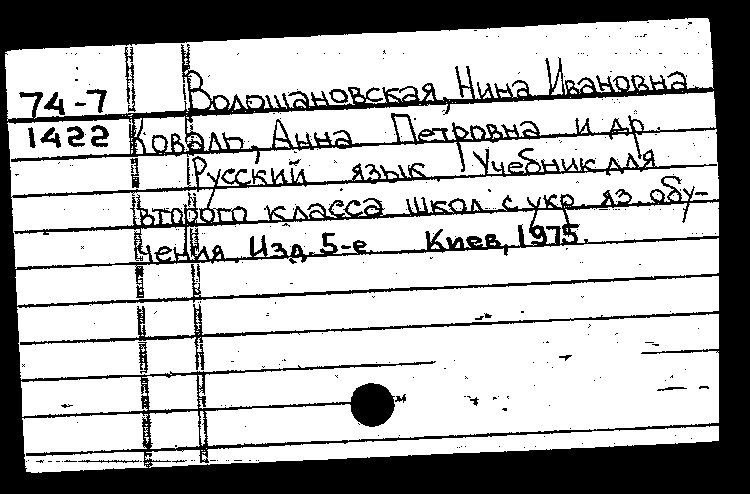 74-7 Волошановская, Нина Ивановна
1422 Коваль, Анна Петровна и др.
Русский язык. Учебник для
второго класса школ с укр. яз. обу-
чения. Изд. 5-е Киев, 1975.